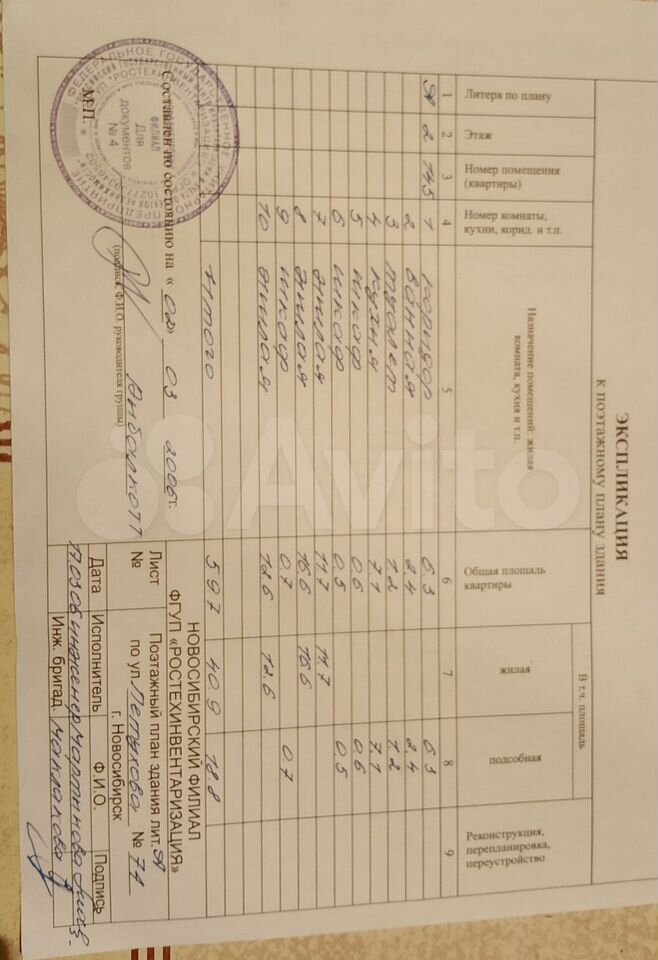 ЭКСПЛИКАЦИЯ
К ПОЭТАЖНОМУ ПЛАНУ ЗДАНИЯ
Литера по плану
Этаж
Номер помещения (квартиры)
Номер комнаты, кухни, корид. и т.п.
Назначение помещений: жилая комната, кухня и т.п.
Общая площадь квартиры
В т.ч. площадь
жилая
подсобная
Реконструкция, перепланировка, переустройство
1 2 3 4 5 6 7 8 9
А 2 145 1 коридор 6.3 6.3
2 ванная 2.4 2.4
3 туалет 1.2 1.2
4 кухня 7.1 7.1
5 шкаф 0.6 0.6
6 шкаф 0.5 0.5
7 жилая 11.7 11.7
8 жилая 16.6 16.6
9 шкаф 0.7 0.7
10 жилая 12.6 12.6
Итого 59.7 40.9 18.8
Составлен по состоянию на «02» 03 2006г.
М.П.
(подпись, Ф.И.О. руководителя группы)
Для документов № 4
ФИЛИАЛ
НОВОСИБИРСКИЙ ФИЛИАЛ
ФГУП «РОСТЕХИНВЕНТАРИЗАЦИЯ»
Лист №
Поэтажный план здания лит. А
по ул. Петухова № 74
г. Новосибирск
Дата Исполнитель Ф.И.О. Подпись
17.03.06 инженер Мартынова
Инж. бригад. Маклакова
Avito